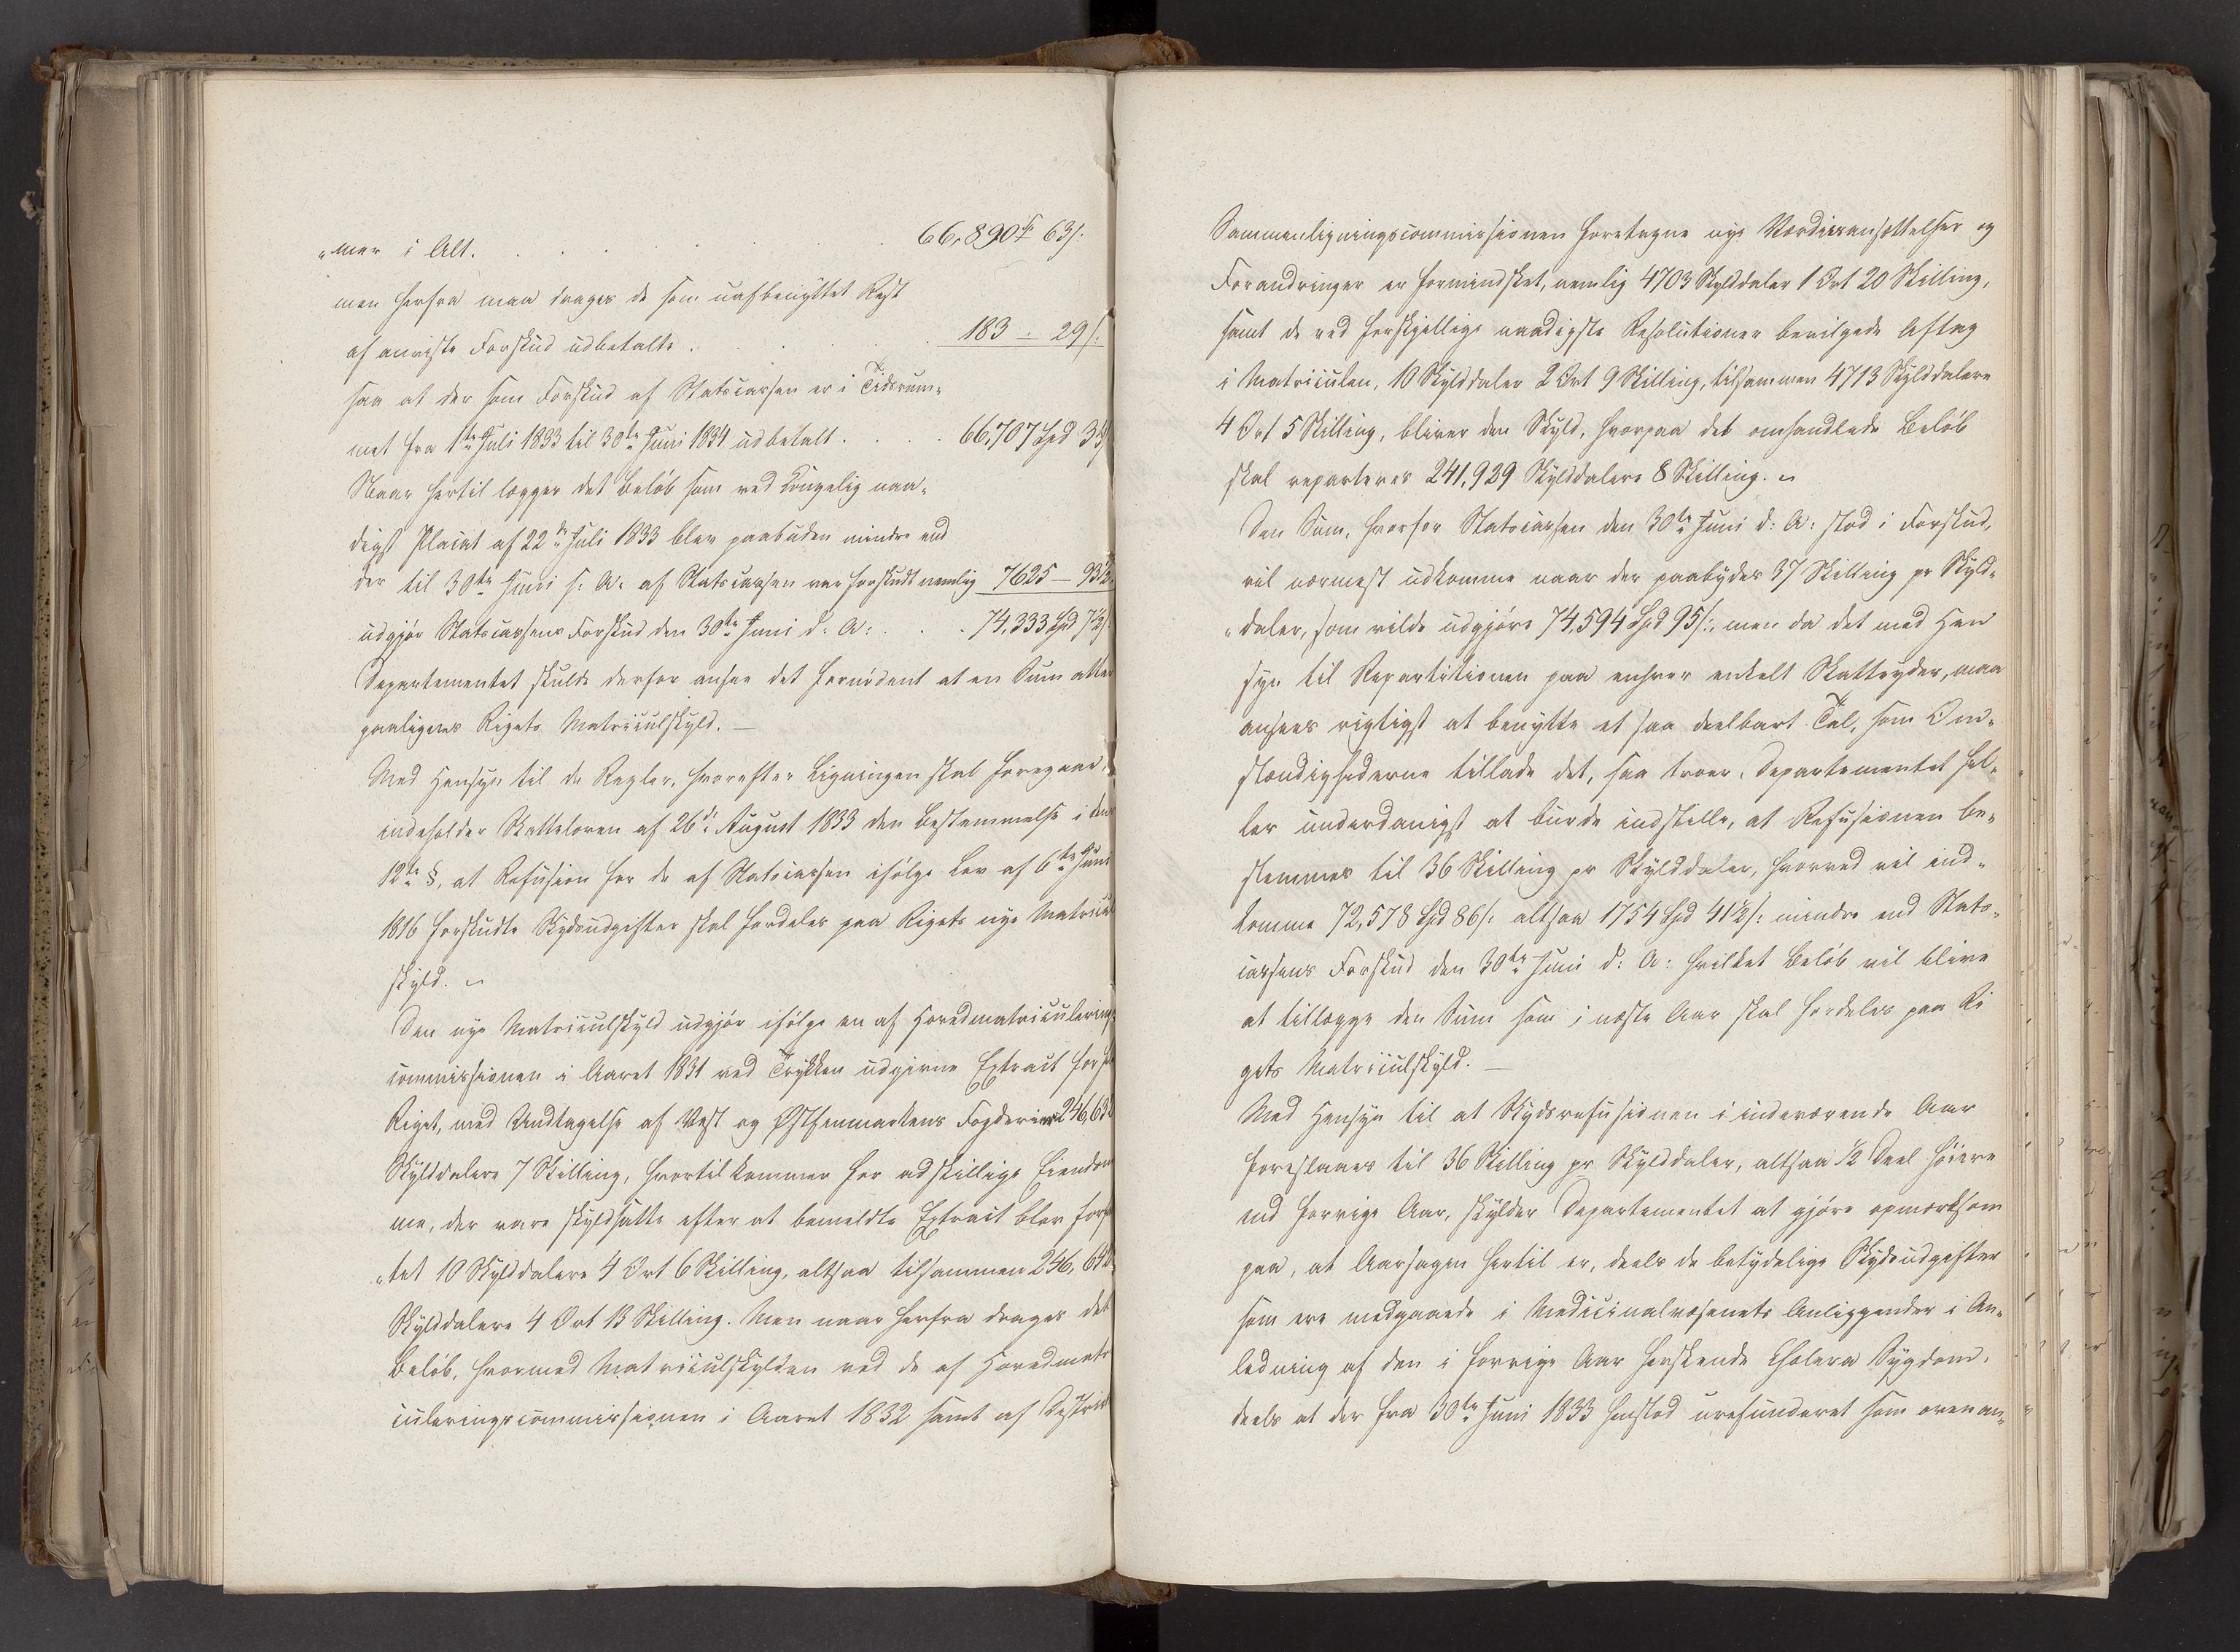 „mer i Alt. . . . . . . 66,890 Spd 63 s:
men herfra maa drages de som uafbenyttet Rest
af anviste Forskud udbetalte . . . . . 183 - 29 s:
saa at der som Forskud af Statscassen er i Tidsrum-
met fra 1ste Juli 1833 til 30te Juni 1834 udbetalt . . . 66,707 Spd 34
Naar hertil lægges det Beløb som ved Kongelig naa-
digst Placat af 22de Juli 1833 blev paabuden mindre end
der til 30te Juni s: A: af Statscassen var forskudt nemlig 7625 — 93½
udgjør Statscassens Forskud den 30te Juni d: A: . . . 74,333 Spd 31½ s:
Departementet skulde derfor ansee det fornødent at en Sum atter
paalignes Rigets Matriculskyld. —
Med Hensyn til de Regler, hvorefter Ligningen skal foregaae,
indeholder Skatteloven af 26de August 1833 den Bestemmelse i den
12te §, at Refusion for de af Statscassen ifølge Lov af 6te Juni
1816 forskudte Skydsudgifter skal fordeles paa Rigets nye Matricul
skyld. „
Den nye Matriculskyld udgjør ifølge en af Hovedmatriculerings
commissionen i Aaret 1831 ved Trykken udgivne Extract for he
Riget, med Undtagelse af Vest og Østfinmarkens Fogderier 246,632
Skylddalere 7 Skilling, hvortil kommer for adskillige Eiendom
me, der vare skyldsatte efter at bemeldte Extract blev forfat
„tet 10 Skylddalere 4 Ort 6 Skilling, altsaa tilsammen 246,642
Skylddalere 4 Ort 13 Skilling. Men naar herfra drages det
Beløb, hvormed Matriculskylden ved de af Hovedmatr
iculeringscommissionen i Aaret 1832 samt af Distrikt
Sammenligningscommissionen foretagne nye Værdieransættelser og
Forandringer er formindsket, nemlig 4703 Skylddaler 1 Ort 20 Skilling,
samt de ved forskjellige naadigste Resolutioner bevilgede Aftag
i Matriculen, 10 Skylddaler 2 Ort 9 Skilling, tilsammen 4713 Skylddalere
4 Ort 5 Skilling, bliver den Skyld, hvorpaa det omhandlede Beløb
skal reparteres 241,929 Skylddalere 8 Skilling. „
Den Sum, hvorfor Statscassen den 30te Juni d: A: stod i Forskud,
vil nærmest udkomme naar der paabydes 37 Skilling pr Skyld-
„daler, som vilde udgjøre 74,594 Spd 95 s:, men da det med Hen
syn til Repartitionen paa enhver enkelt Skatteyder, maa
ansees rigtigst at benytte et saa deelbart Tal, som Om-
stændighederne tillade det, saa troer Departementet hel-
ler underdanigst at burde indstille, at Refusionen be-
stemmes til 36 Skilling pr Skylddaler, hvorved vil ind-
komme 72,578 Spd 86 s: altsaa 1754 Spd 41½ s: mindre end Stats-
cassens Forskud den 30te Juni d: A: hvilket Beløb vil blive
at tillægge den Sum som i næste Aar skal fordeles paa Ri
gets Matriculskyld. —
Med Hensyn til at Skydsrefusionen i indeværende Aar
foreslaaes til 36 Skilling pr Skylddaler, altsaa ½ Deel høiere
end forrige Aar, skylder Departementet at gjøre opmærksom
paa, at Aarsagen hertil er, deels de betydelige Skydsudgifter
som ere medgaaede i Medicinalvæsenets Anliggender i An-
ledning af den i forrige Aar herskende Cholera Sygdom,
deels at der fra 30te Juni 1833 henstod urefunderet som oven an-